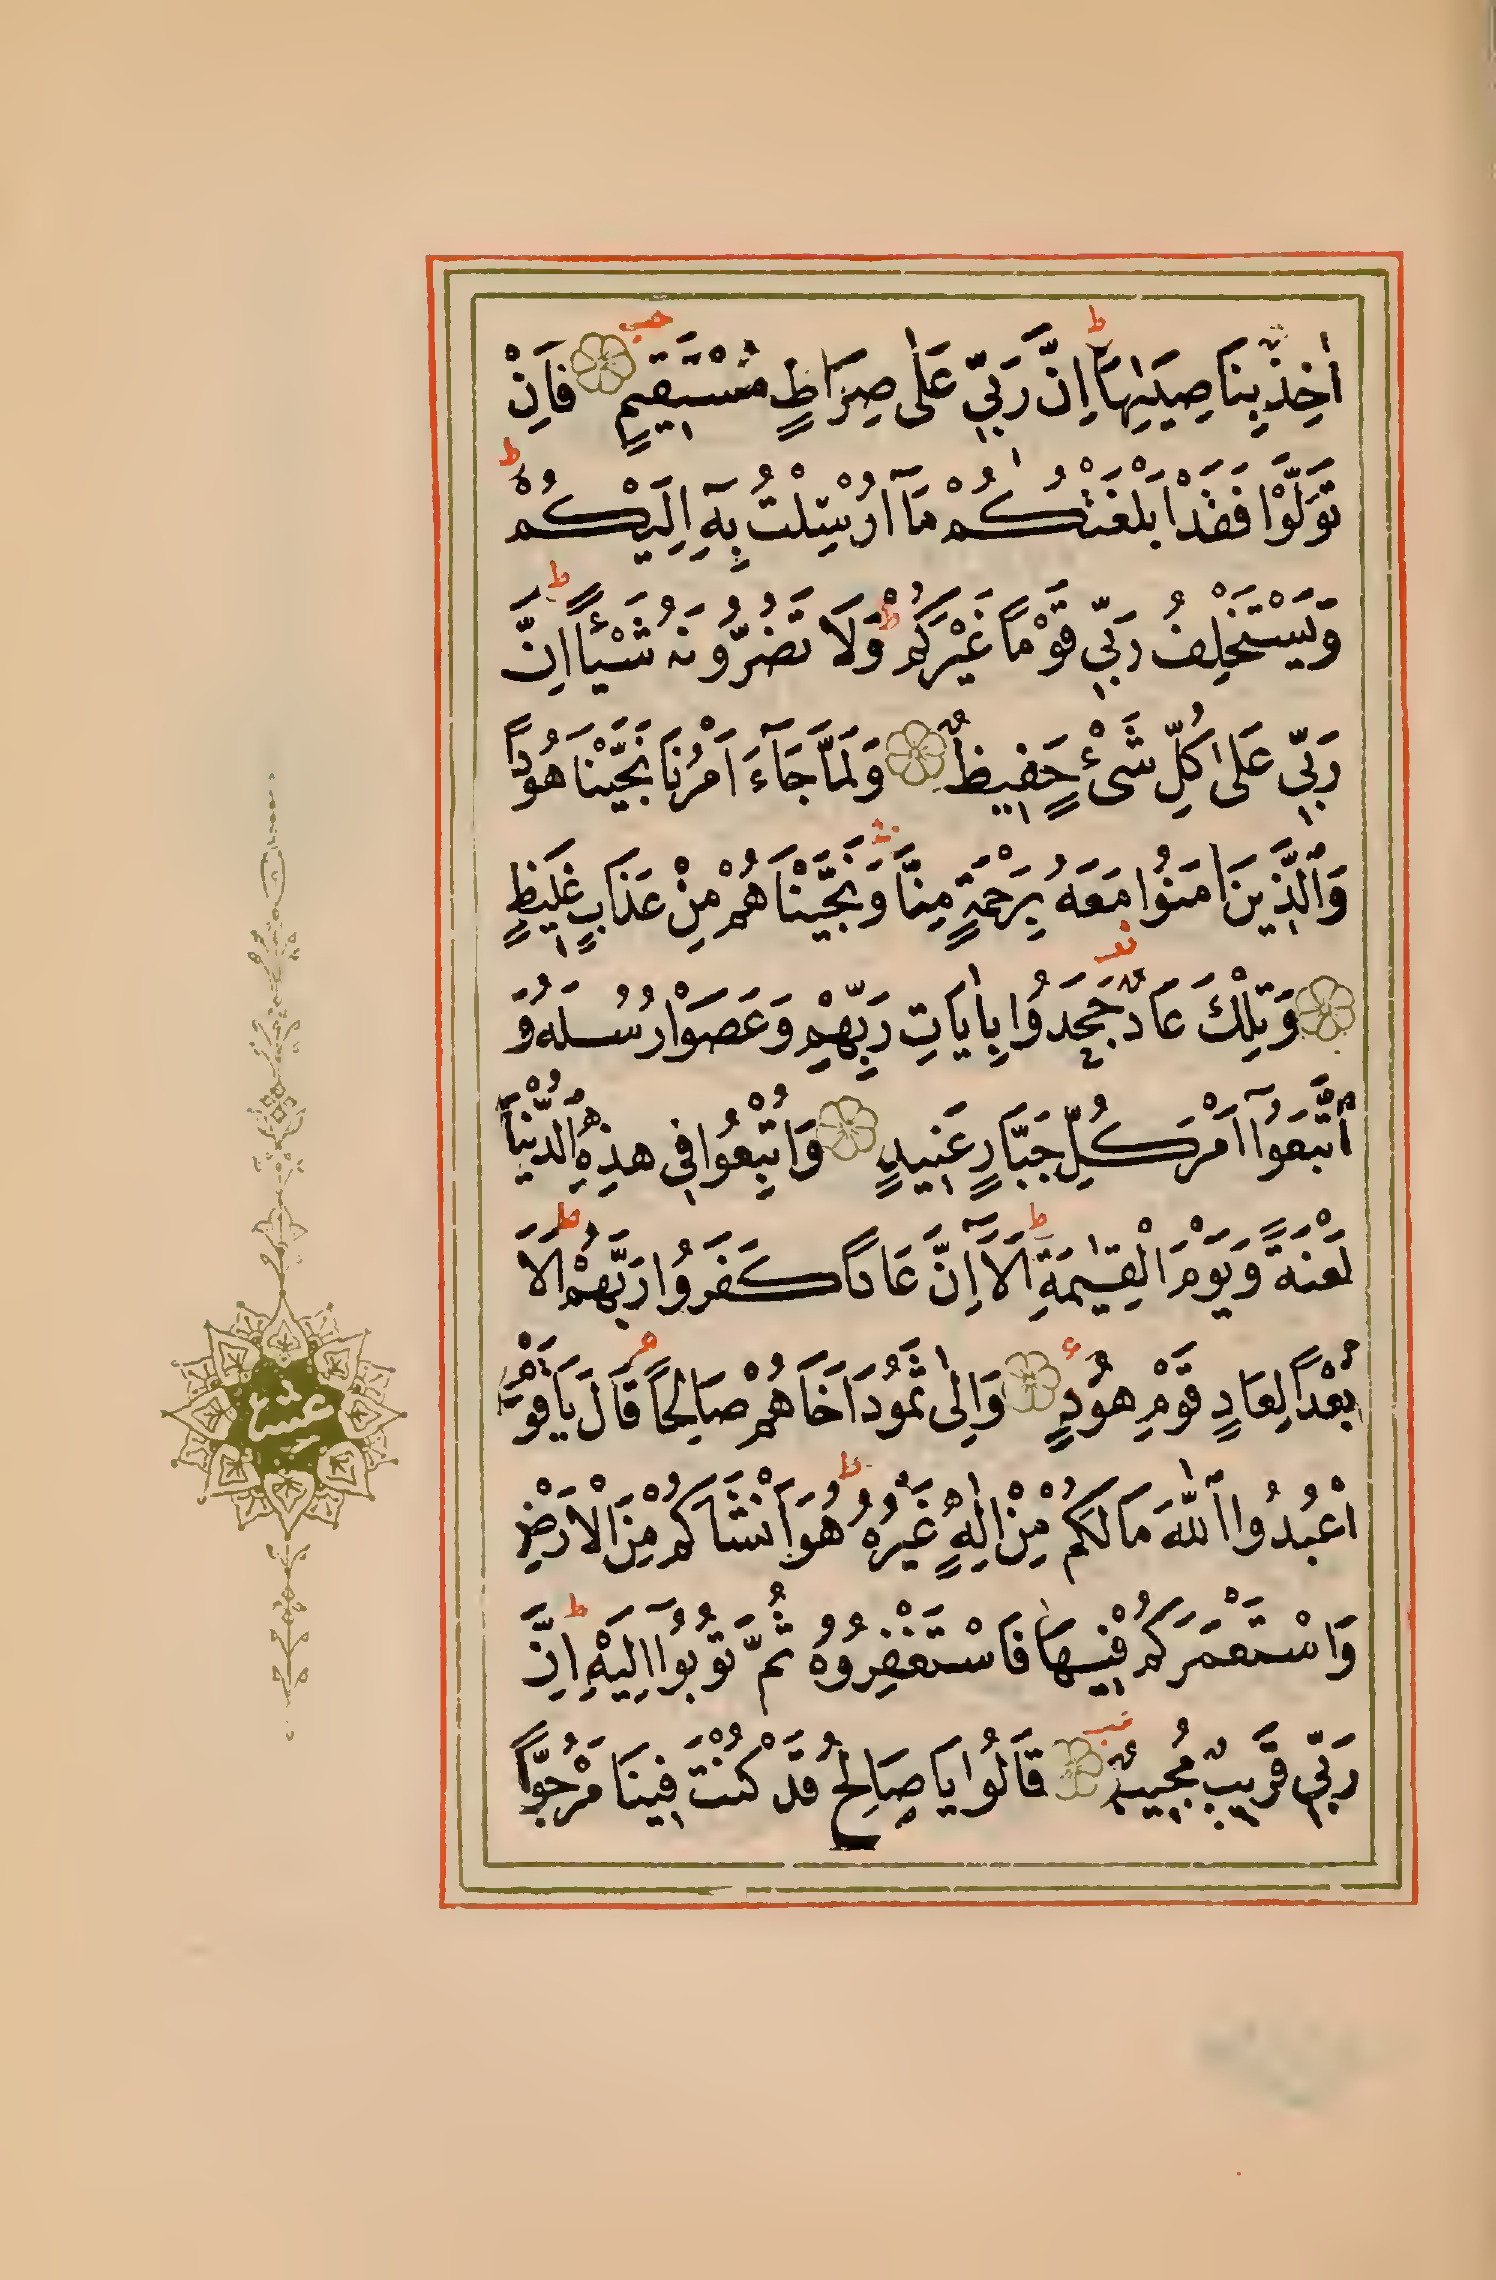 اٰخِذٌ بِنَاصِيَتِهَاۜ اِنَّ رَبّ۪ي عَلٰى صِرَاطٍ مُسْتَق۪يمٍ فَاِنْ
تَوَلَّوْا فَقَدْ اَبْلَغْتُكُمْ مَٓا اُرْسِلْتُ بِه۪ٓ اِلَيْكُمْۜ
وَيَسْتَخْلِفُ رَبّ۪ي قَوْمًا غَيْرَكُمْۚ وَلَا تَضُرُّونَهُ شَيْـًٔاۜ اِنَّ
رَبّ۪ي عَلٰى كُلِّ شَيْءٍ حَف۪يظٌ وَلَمَّا جَٓاءَ اَمْرُنَا نَجَّيْنَا هُودًا
وَالَّذ۪ينَ اٰمَنُوا مَعَهُ بِرَحْمَةٍ مِنَّا وَنَجَّيْنَاهُمْ مِنْ عَذَابٍ غَل۪يظٍ
وَتِلْكَ عَادٌ جَحَدُوا بِاٰيَاتِ رَبِّهِمْ وَعَصَوْا رُسُلَهُ وَ
اتَّبَعُٓوا اَمْرَ كُلِّ جَبَّارٍ عَن۪يدٍ وَاُتْبِعُوا ف۪ي هٰذِهِ الدُّنْيَا
لَعْنَةً وَيَوْمَ الْقِيٰمَةِۜ اَلَٓا اِنَّ عَادًا كَفَرُوا رَبَّهُمْۜ اَلَا
بُعْدًا لِعَادٍ قَوْمِ هُودٍ وَاِلٰى ثَمُودَ اَخَاهُمْ صَالِحًا قَالَ يَا قَوْمِ
اعْبُدُوا اللّٰهَ مَا لَكُمْ مِنْ اِلٰهٍ غَيْرُهُۜ هُوَ اَنْشَاَكُمْ مِنَ الْاَرْضِ
وَاسْتَعْمَرَكُمْ ف۪يهَا فَاسْتَغْفِرُوهُ ثُمَّ تُوبُٓوا اِلَيْهِۜ اِنَّ
رَبّ۪ي قَر۪يبٌ مُج۪يبٌ قَالُوا يَا صَالِحُ قَدْ كُنْتَ ف۪ينَا مَرْجُوًّا